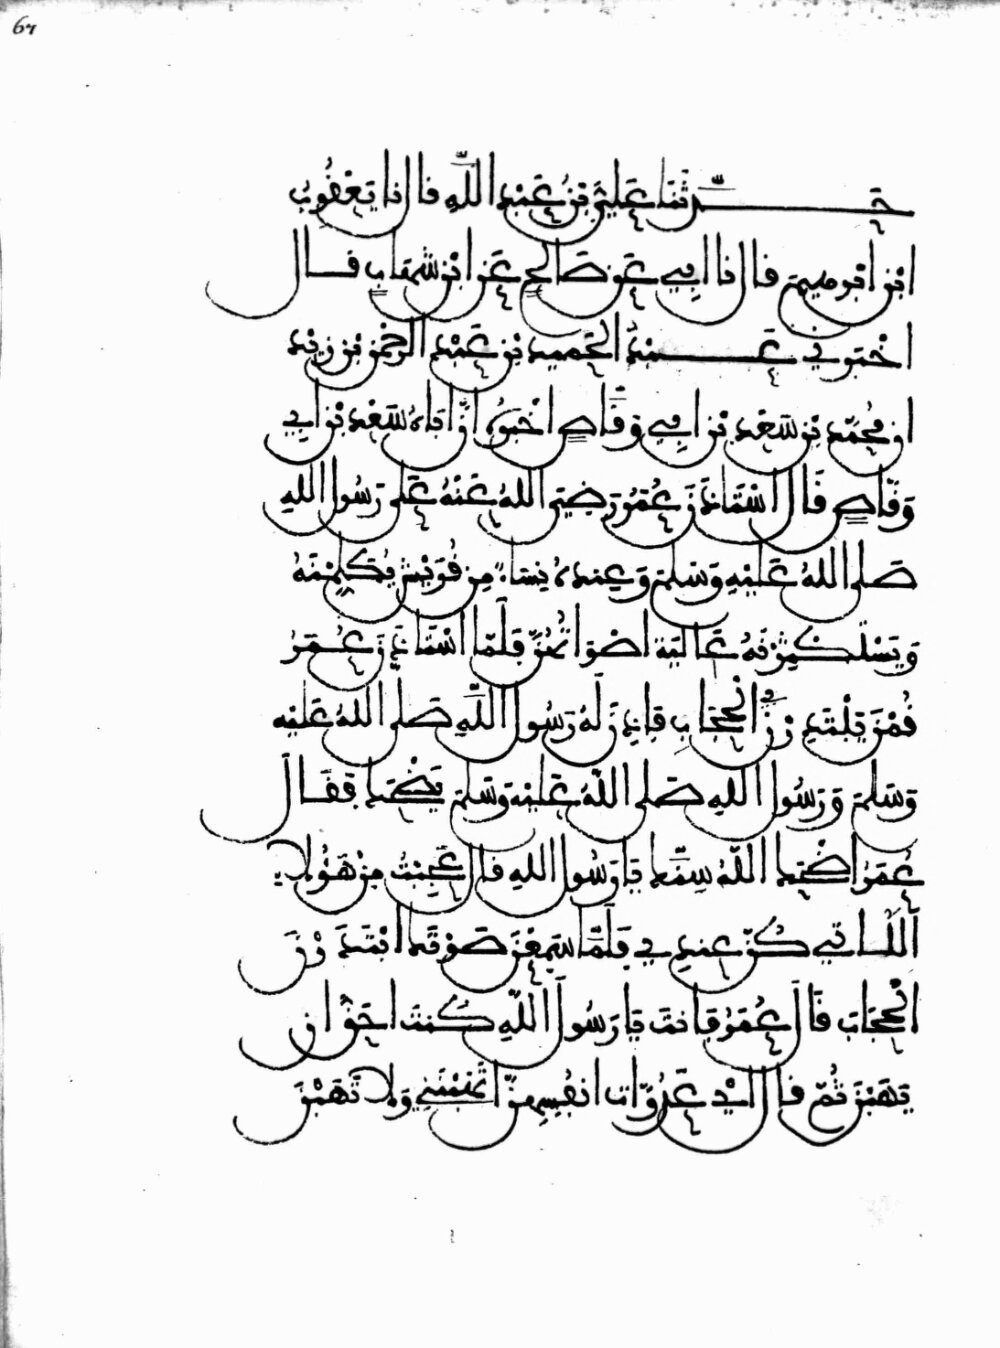 67
حَدَّثَنَا عَلِيُّ بْنُ عَبْدِ اللَّهِ قَالَ نَا يَعْقُوبُ
ابْنُ ابْرهِيمَ قَالَ نَا ابِي عَنْ صَالِحٍ عَنِ ابْنِ شِهَابٍ قَالَ
اخْبَرَنِي عَبْدُ الْحَمِيدِ بْنُ عَبْدِ الرَّحْمَنِ بْنِ زَيْدٍ
انَّ مُحَمَّدَ بْنَ سَعْدِ بْنِ ابِي وَقَّاصٍ اخْبَرَهُ انَّ ابَاهُ سَعْدَ بْنَ ابِي
وَقَّاصٍ قَالَ اسْتَاذَنَ عُمَرُ رَضِيَ اللَّهُ عَنْهُ عَلَى رَسُولِ اللَّهِ
صَلَّى اللَّهُ عَلَيْهِ وَسَلَّمَ وَعِنْدَهُ نِسَاءٌ مِنْ قُرَيْشٍ يُكَلِّمْنَهُ
وَيَسْتَكْثِرْنَهُ عَالِيَةً اصْوَاتُهُنَّ فَلَمَّا اسْتَاذَنَ عُمَرُ
قُمْنَ يَبْتَدِرْنَ الْحِجَابَ فَاذِنَ لَهُ رَسُولُ اللَّهِ صَلَّى اللَّهُ عَلَيْهِ
وَسَلَّمَ وَرَسُولُ اللَّهِ صَلَّى اللَّهُ عَلَيْهِ وَسَلَّمَ يَضْحَكُ فَقَالَ
عُمَرُ اضْحَكَ اللَّهُ سِنَّكَ يَا رَسُولَ اللَّهِ قَالَ عَجِبْتُ مِنْ هَؤُلَاءِ
اللَّاتِي كُنَّ عِنْدِي فَلَمَّا سَمِعْنَ صَوْتَكَ ابْتَدَرْنَ
الْحِجَابَ قَالَ عُمَرُ فَانْتَ يَا رَسُولَ اللَّهِ كُنْتَ احَقَّ انْ
يَهَبْنَ ثُمَّ قَالَ ايْ عَدُوَّاتِ انْفُسِهِنَّ اتَهَبْنَنِي وَلَا تَهَبْنَ